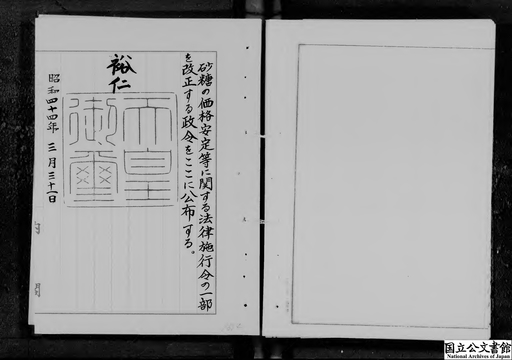 砂糖の価格安定等に関する法律施行令の一部
を改正する政令をここに公布する。
裕仁
天皇
御璽
昭和四十四年三月三十一日
国立公文書館
National Archives of Japan